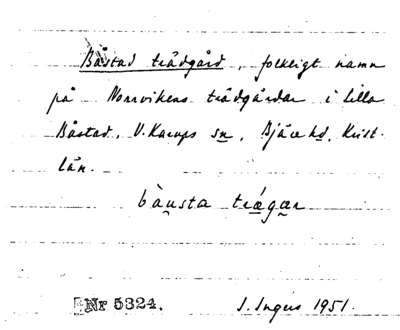 Båstad trädgård, folkligt namn
på Norrvikens trädgårdar i Lilla
Båstad, V. Karups sn, Bjäre hd, Krist.
län.
bàu̯sta trä́gæ̱r
Nr 5324. I. Ingers 1951.